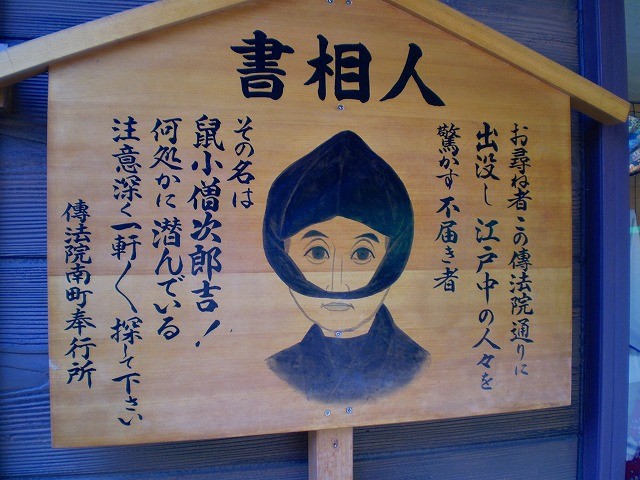 人相書
お尋ね者この傳法院通りに
出没し江戸中の人々を
驚かす不届き者
その名は
鼠小僧次郎吉！
何処かに潜んでいる
注意深く一軒〱探して下さい
傳法院南町奉行所